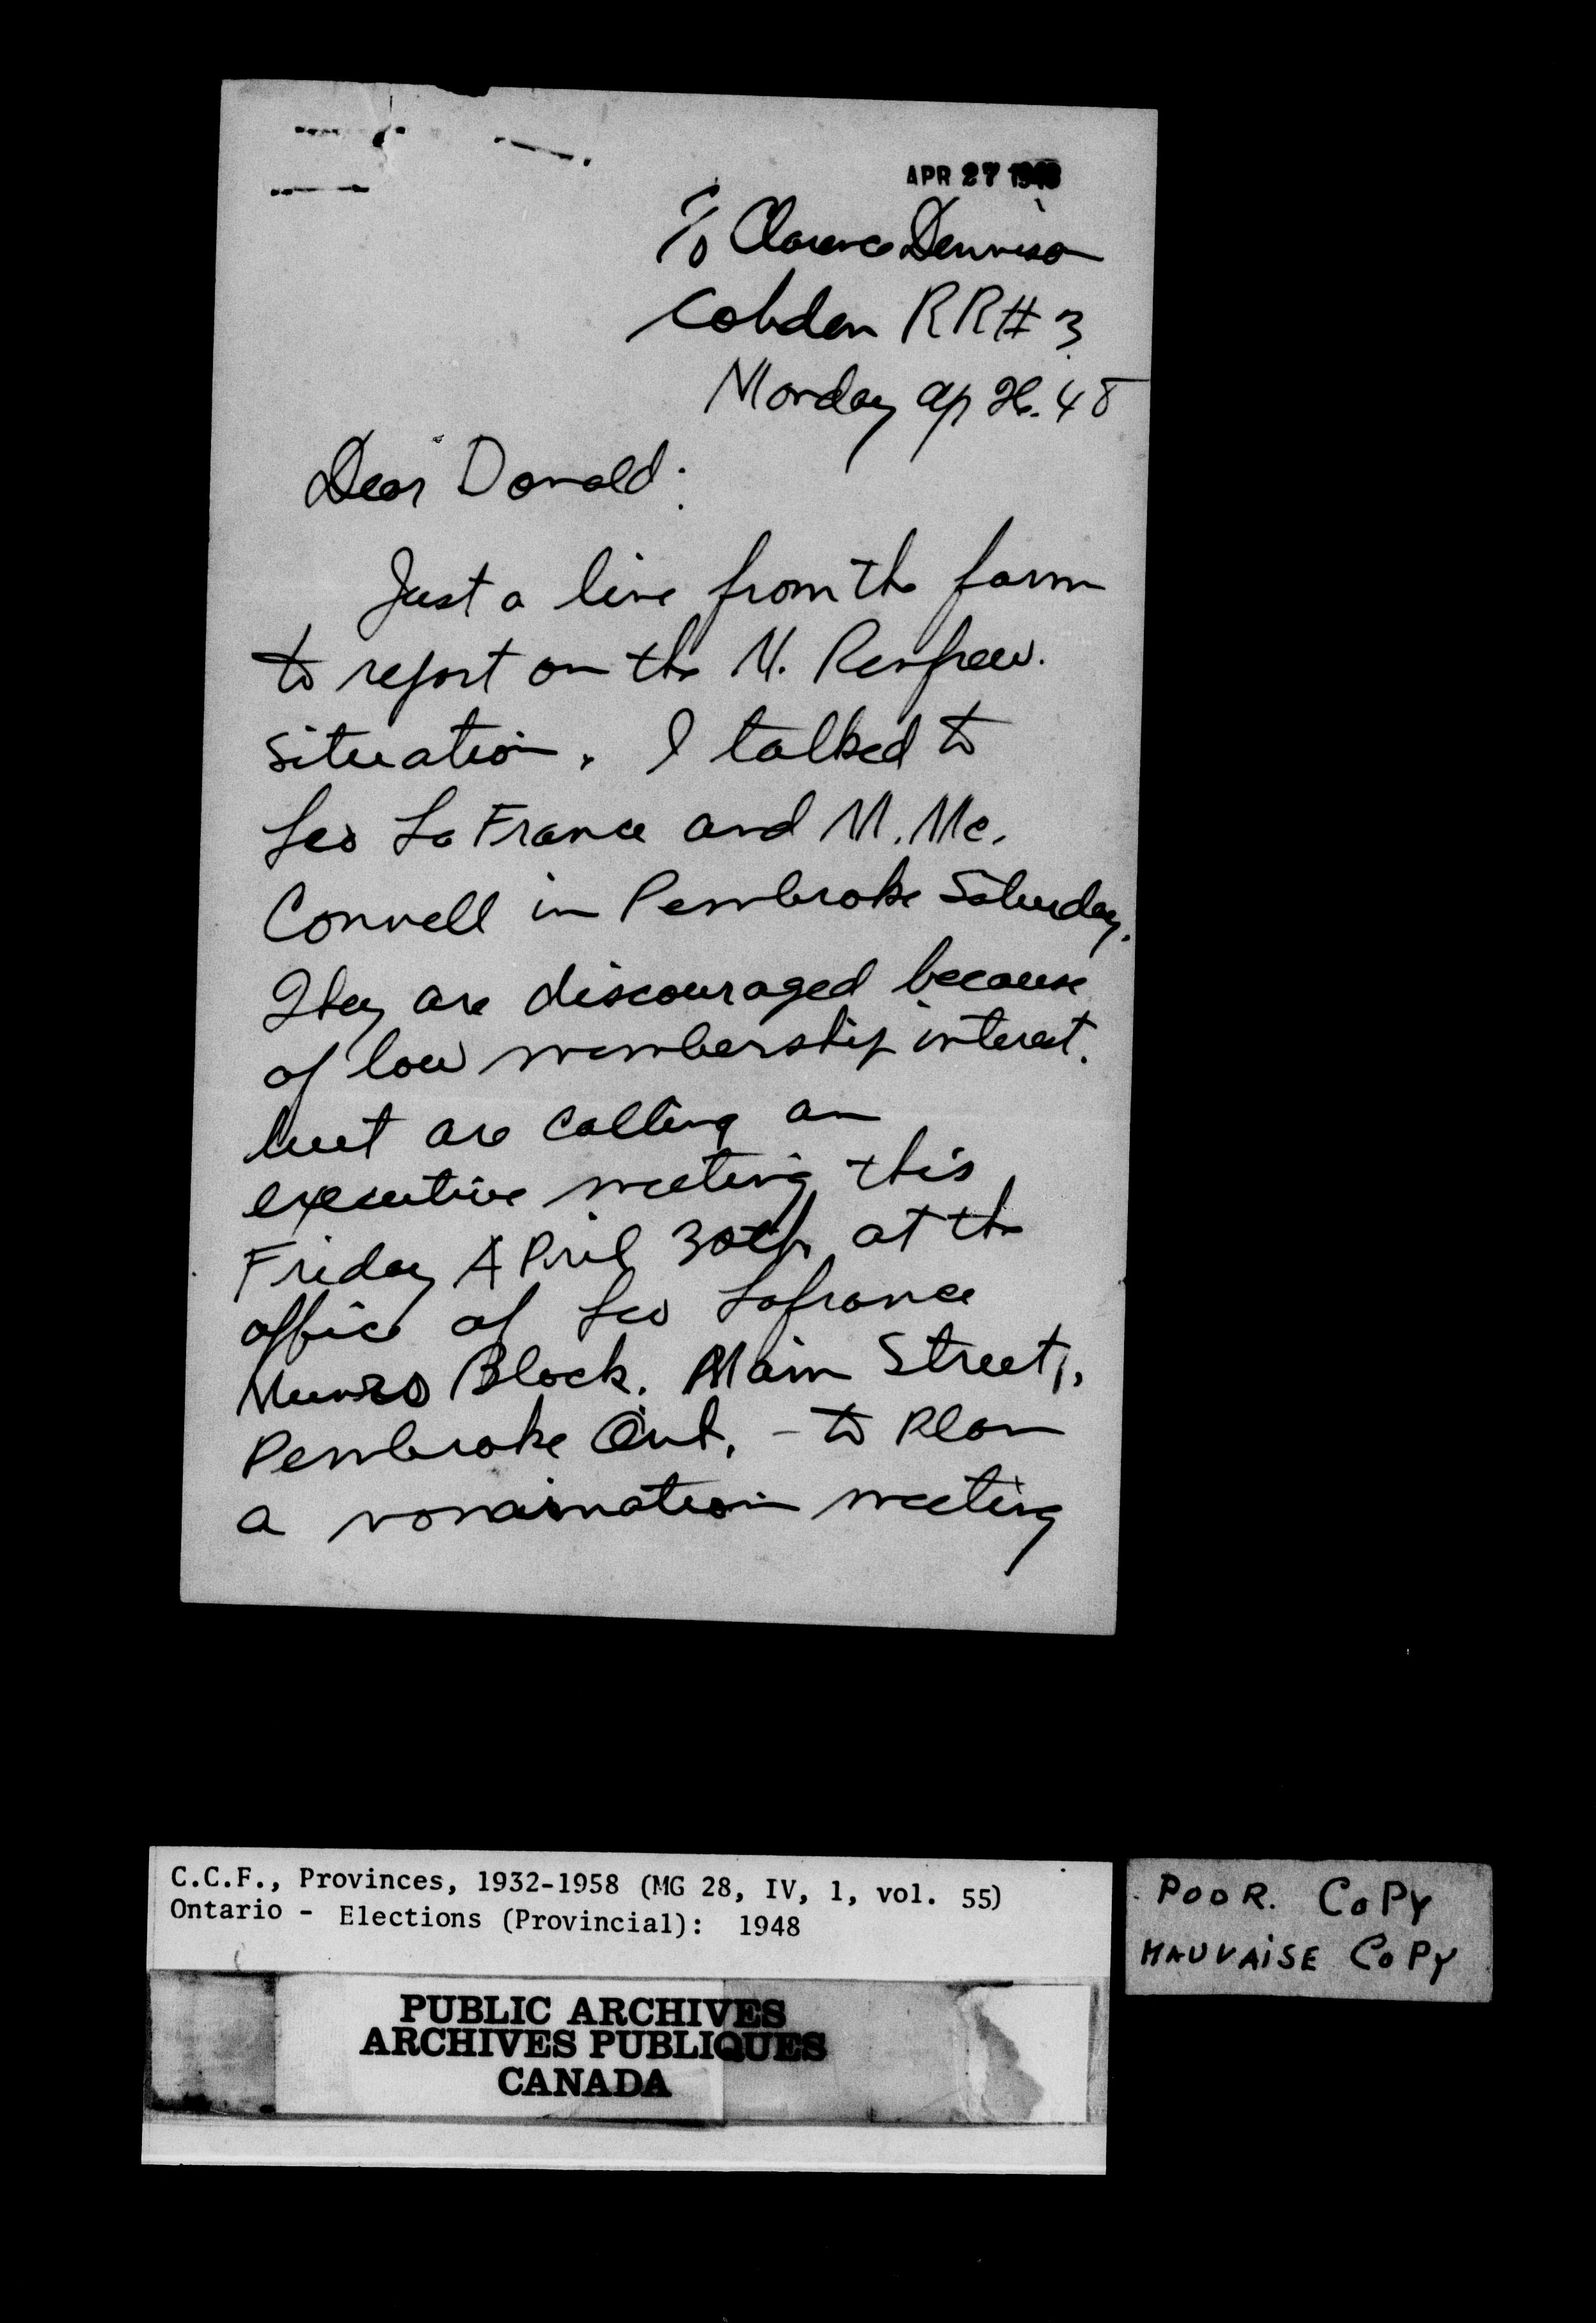 APR 27 1948
C/o Clarence Dennison
Cobden RR# 3
Monday Ap 26. 48
Dear Donald:
Just a line from the farm
to report on the N. Renfrew.
situation. I talked to
Leo La France and M. Mc.
Connell in Pembroke Saturday.
They are discouraged because
of low membership interest.
but are calling an
executive meeting this
Friday April 30th at the
office of Leo Lafrance
Munro Block. Main Street,
Pembroke Ont. - to plan
a nomination meeting
C.C.F., Provinces, 1932-1958 (MG 28, IV, 1, vol. 55)
Ontario - Elections (Provincial): 1948
POOR. COPY
MAUVAISE COPY
PUBLIC ARCHIVES
ARCHIVES PUBLIQUES
CANADA